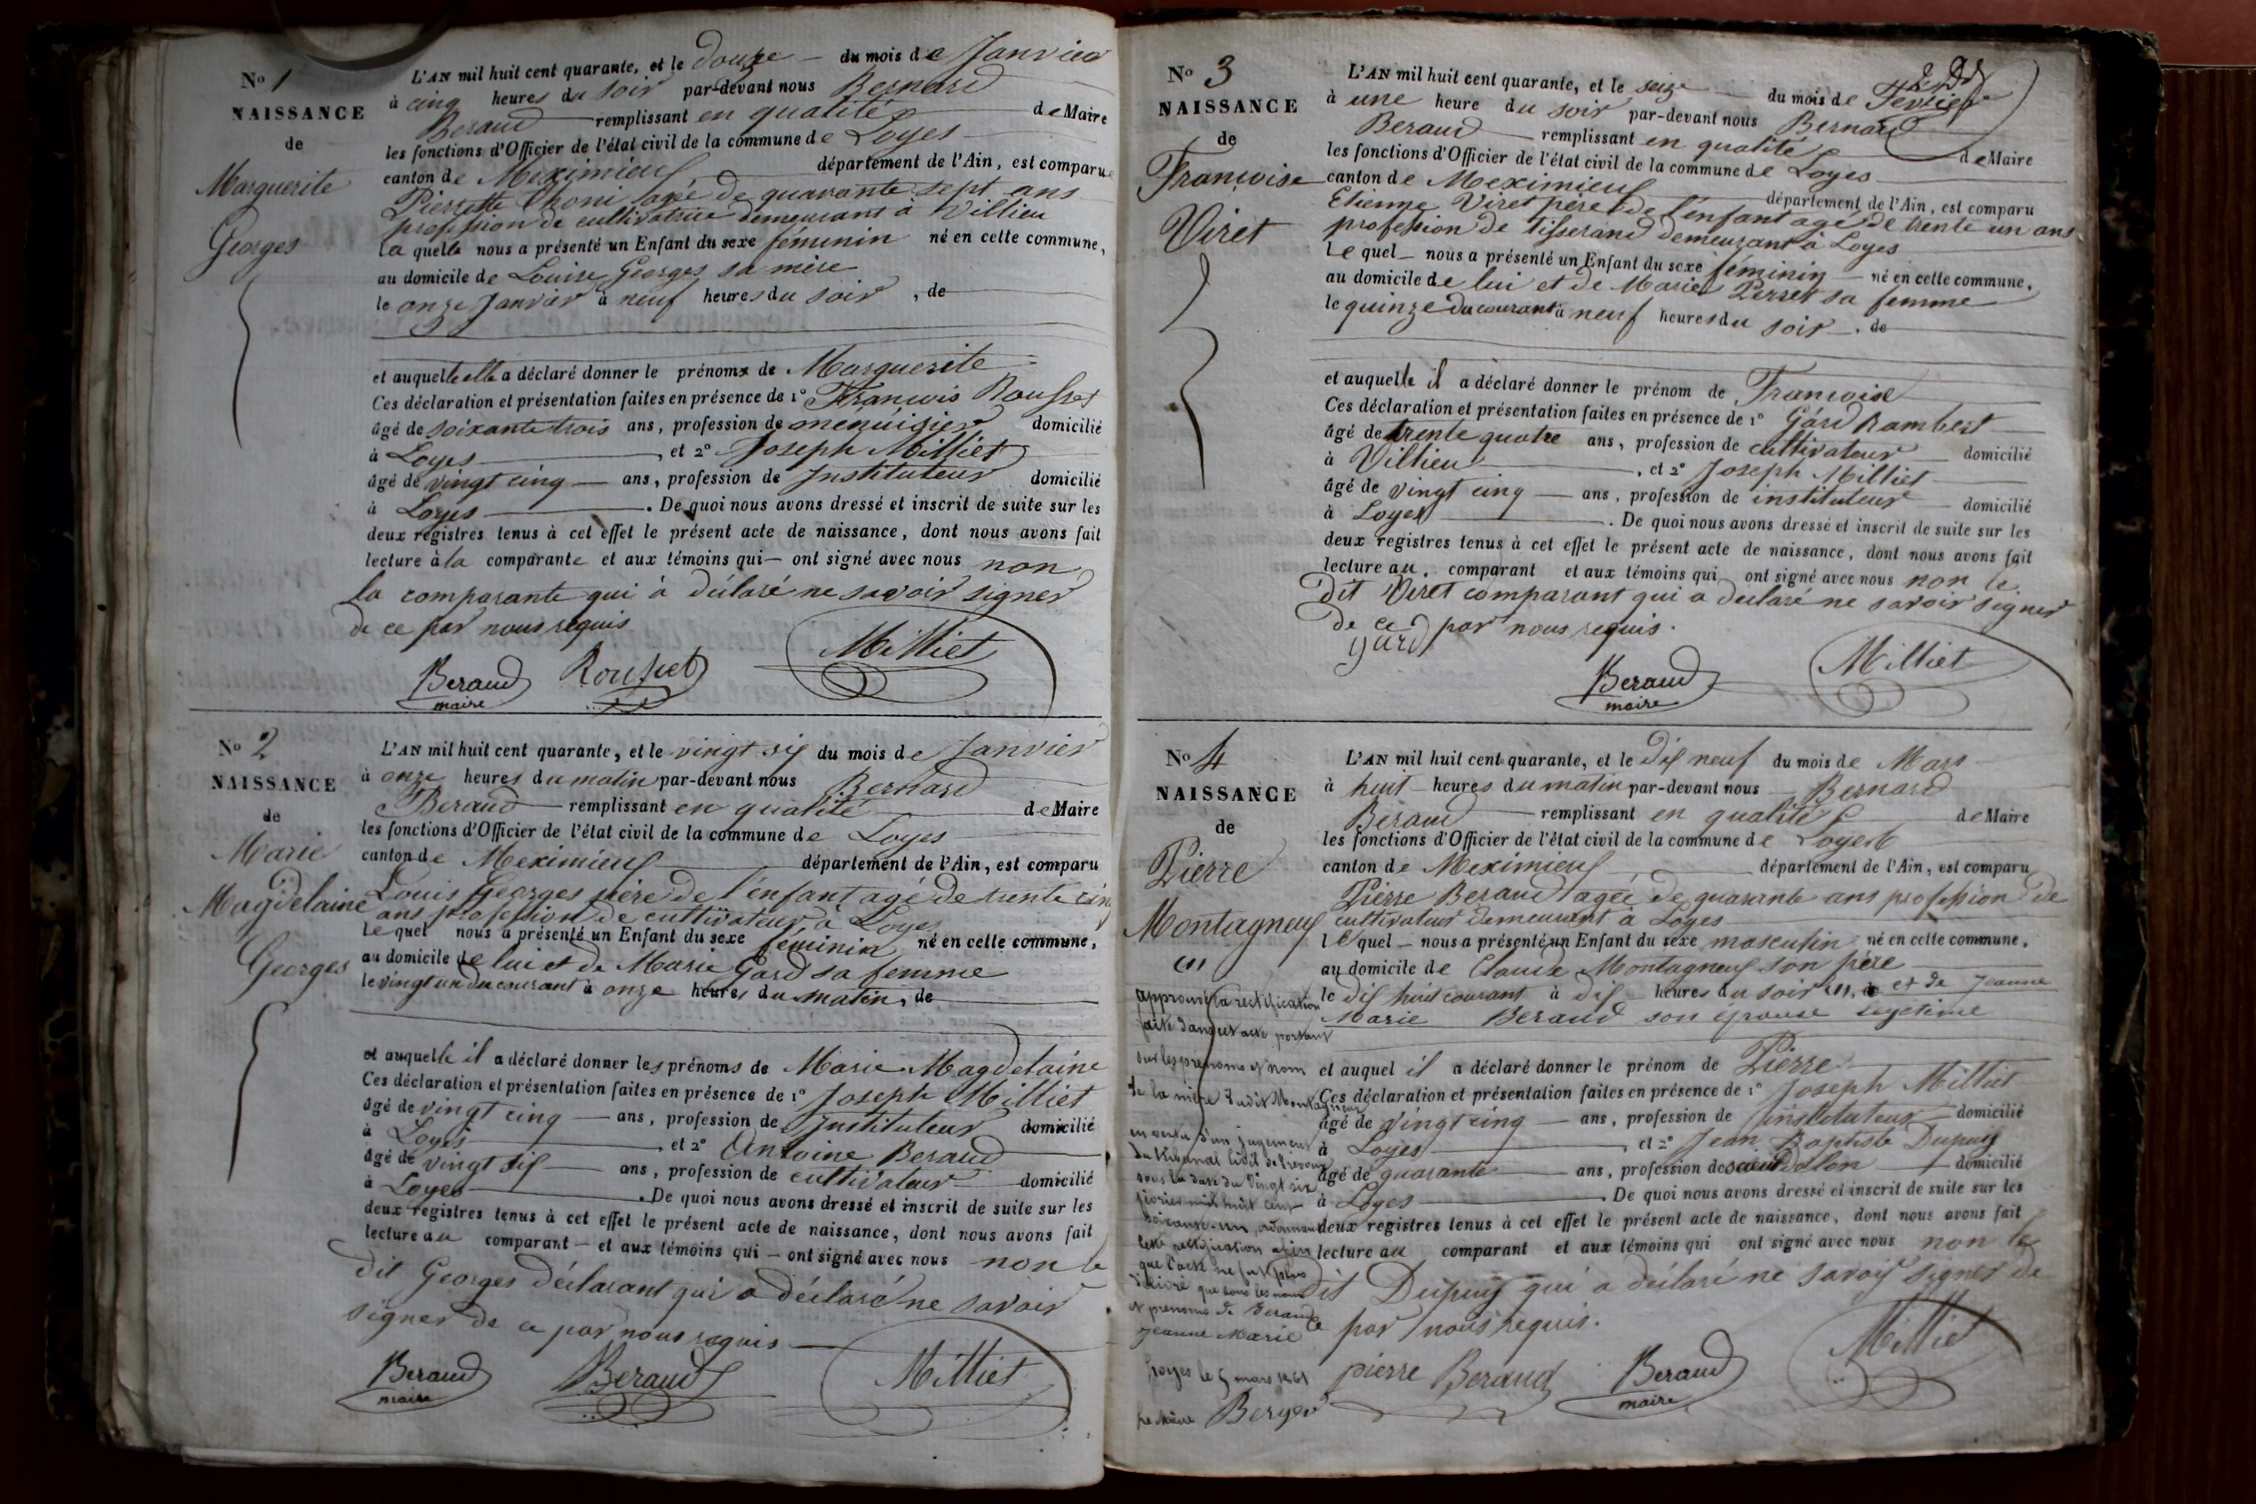 No 1
NAISSANCE
de
Marguerite
Georges
L'AN mil huit cent quarante, et le douze du mois de Janvier
à cinq heures du soir par-devant nous Bernard
Beraud remplissant en qualité de Maire
les fonctions d'Officier de l'état civil de la commune de Loyes
canton de Meximieux département de l'Ain, est comparue
Pierrette Choni agé de quarante sept ans
profession de cultivatrice demeurant à Villieu
la quelle nous a présenté un Enfant du sexe féminin né en cette commune,
au domicile de Louise Georges sa mère
le onze Janvier à neuf heures du soir, de
et auquelle elle a déclaré donner le prénoms de Marguerite
Ces déclaration et présentation faites en présence de 1° François Rousset
âgé de soixante trois ans, profession de menuisier domicilié
à Loyes, et 2° Joseph Milliet
âgé de vingt cinq ans, profession de Instituteur domicilié
à Loyes. De quoi nous avons dressé et inscrit de suite sur les
deux registres tenus à cet effet le présent acte de naissance, dont nous avons fait
lecture à la comparante et aux témoins qui ont signé avec nous non
la comparante qui à déclaré ne savoir signer
de ce par nous requis
Beraud Rousset Milliet
maire
No 2
NAISSANCE
de
Marie
Magdelaine
Georges
L'AN mil huit cent quarante, et le vingt six du mois de Janvier
à onze heures du matin par-devant nous Bernard
Beraud remplissant en qualité de Maire
les fonctions d'Officier de l'état civil de la commune de Loyes
canton de Meximieux département de l'Ain, est comparu
Louis Georges père de l'enfant agé de trente cinq
ans profession de cultivateur à Loyes
le quel nous a présenté un Enfant du sexe féminin né en cette commune,
au domicile de lui et de Marie Gard sa femme
le vingt un du courant à onze heures du matin, de
et auquelle il a déclaré donner les prénoms de Marie Magdelaine
Ces déclaration et présentation faites en présence de 1° Joseph Milliet
âgé de vingt cinq ans, profession de Instituteur domicilié
à Loyes, et 2° Antoine Beraud
âgé de vingt six ans, profession de cultivateur domicilié
à Loyes. De quoi nous avons dressé et inscrit de suite sur les
deux registres tenus à cet effet le présent acte de naissance, dont nous avons fait
lecture au comparant et aux témoins qui ont signé avec nous non le
dit Georges déclarant qui a déclaré ne savoir
signer de ce par nous requis
Beraud Beraud Milliet
maire
No 3
NAISSANCE
de
Françoise
Viret
L'AN mil huit cent quarante, et le seize du mois de Fevrier
à une heure du soir par-devant nous Bernard
Beraud remplissant en qualité de Maire
les fonctions d'Officier de l'état civil de la commune de Loyes
canton de Meximieux département de l'Ain, est comparu
Etienne Viret père de l'enfant agé de trente un ans
profession de tisserand demeurant à Loyes
Le quel nous a présenté un Enfant du sexe féminin né en cette commune,
au domicile de lui et de Marie Perret sa femme
le quinze du courant à neuf heures du soir, de
et auquelle il a déclaré donner le prénom de Françoise
Ces déclaration et présentation faites en présence de 1° Gard Rambert
âgé de trente quatre ans, profession de cultivateur domicilié
à Villieu, et 2° Joseph Milliet
âgé de vingt cinq ans, profession de instituteur domicilié
à Loyes. De quoi nous avons dressé et inscrit de suite sur les
deux registres tenus à cet effet le présent acte de naissance, dont nous avons fait
lecture au comparant et aux témoins qui ont signé avec nous non le
dit Viret comparant qui a declaré ne savoir signer
de ce par nous requis.
gard Beraud Milliet
maire
No 4
NAISSANCE
de
Pierre
Montagneux
(1)
approuvé la rectification
faite dans cet acte portant
sur les prenoms et nom
de la mère dudit Montagneux
en vertu d'un jugement
du tribunal Civil de Trevoux
sous la date du Vingt six
fevrier mil huit cent
soixante-un, ordonnant
cette rectification afin
que l'acte ne fut plus
délivré que sous les noms
et prenoms de Beraud
Jeanne Marie
Loyes le 5 mars 1861
Le Maire Berger
L'AN mil huit cent quarante, et le dix neuf du mois de Mars
à huit heures du matin par-devant nous Bernard
Beraud remplissant en qualité de Maire
les fonctions d'Officier de l'état civil de la commune de Loyes
canton de Meximieux département de l'Ain, est comparu
Pierre Beraud agée de quarante ans profession de
cultivateur demeurant à Loyes
le quel nous a présenté un Enfant du sexe masculin né en cette commune,
au domicile de Claude Montagneux son père
le dix huit courant à dix heures du soir (1), et de Jeanne
Marie Beraud son épouse legitime
et auquel il a déclaré donner le prénom de Pierre
Ces déclaration et présentation faites en présence de 1° Joseph Milliet
âgé de vingt cinq ans, profession de instituteur domicilié
à Loyes, et 2° Jean Baptiste Dupuy
âgé de quarante ans, profession de domicilié
à Loyes. De quoi nous avons dressé et inscrit de suite sur les
deux registres tenus à cet effet le présent acte de naissance, dont nous avons fait
lecture au comparant et aux témoins qui ont signé avec nous non le
dit Dupuy qui a déclaré ne savoir signer de
ce par nous requis.
pierre Beraud Beraud Milliet
maire